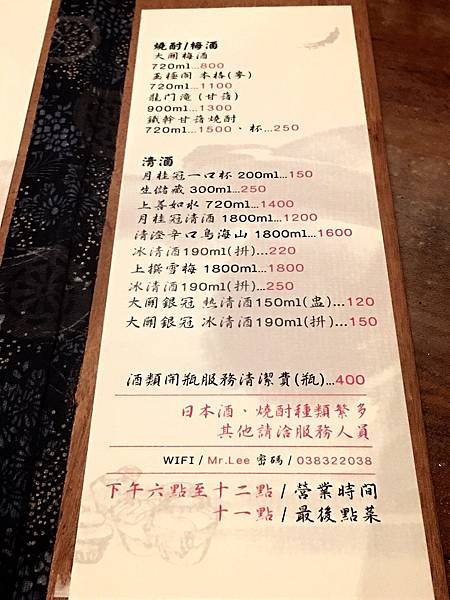 燒酎/梅酒
大關梅酒
720ml...800
王極閣 本格(麥)
720ml...1100
龍門滝 (甘藷)
900ml...1300
鐵幹甘藷燒酎
720ml...1500、杯...250
清酒
月桂冠一口杯 200ml...150
生儲藏 300ml...250
上善如水 720ml...1400
月桂冠清酒 1800ml...1200
清澄辛口鳥海山 1800ml...1600
冰清酒190ml(拼)...220
上撰雪梅 1800ml...1800
冰清酒190ml(拼)...250
大關銀冠 熱清酒150ml(盅)...120
大關銀冠 冰清酒190ml(拼)...150
酒類開瓶服務清潔費(瓶)...400
日本酒、燒酎種類繁多
其他請洽服務人員
WIFI / Mr.Lee 密碼 / 038322038
下午六點至十二點 / 營業時間
十一點 / 最後點菜